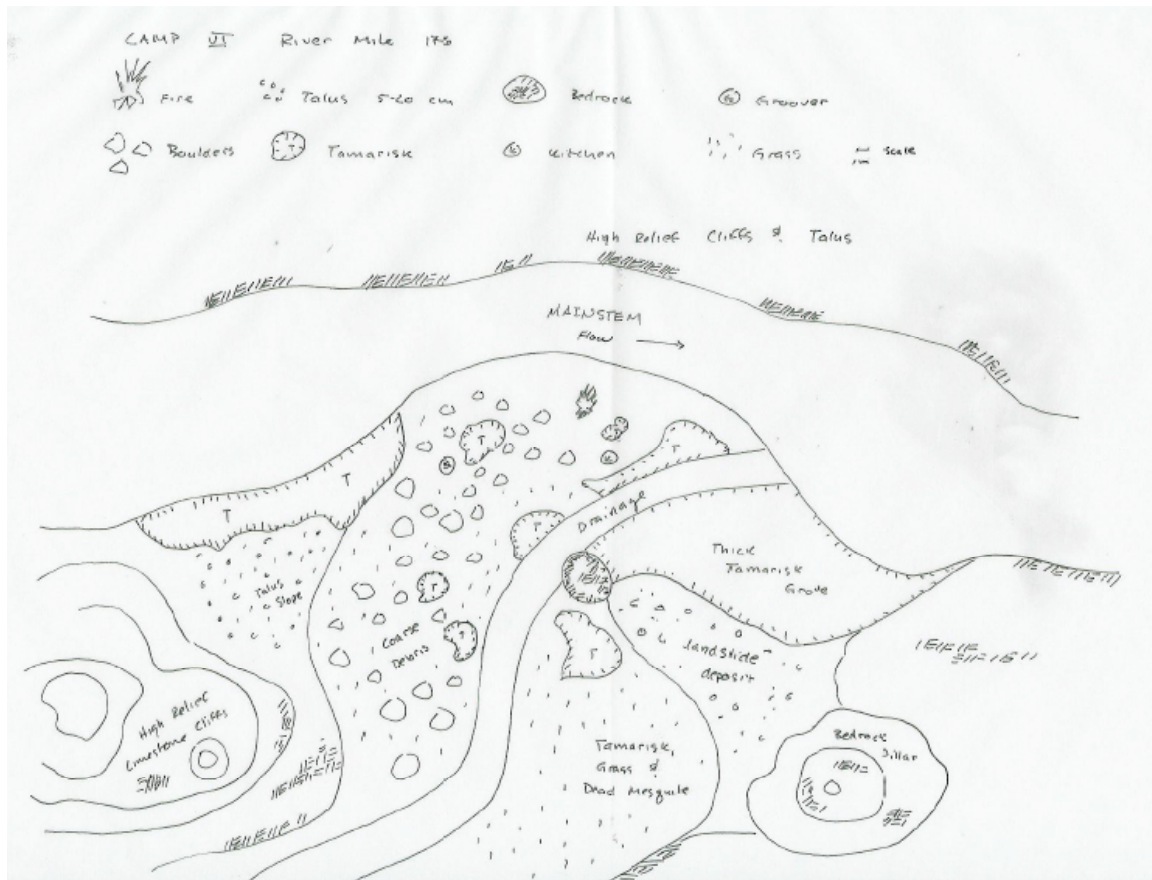 CAMP VI River Mile 175
Fire Talus 5-20 cm Bedrock G Groover
Boulders T Tamarisk K Kitchen Grass Scale
1m
High Relief Cliffs & Talus
MAINSTEM
Flow
T
T
T
T
K
G
T
Drainage
Thick
Tamarisk
Grove
Talus
Slope
T
Coarse
Debris
T
T
Landslide
deposit
High Relief
Limestone Cliffs
Tamarisk,
Grass &
Dead Mesquite
Bedrock
Pillar